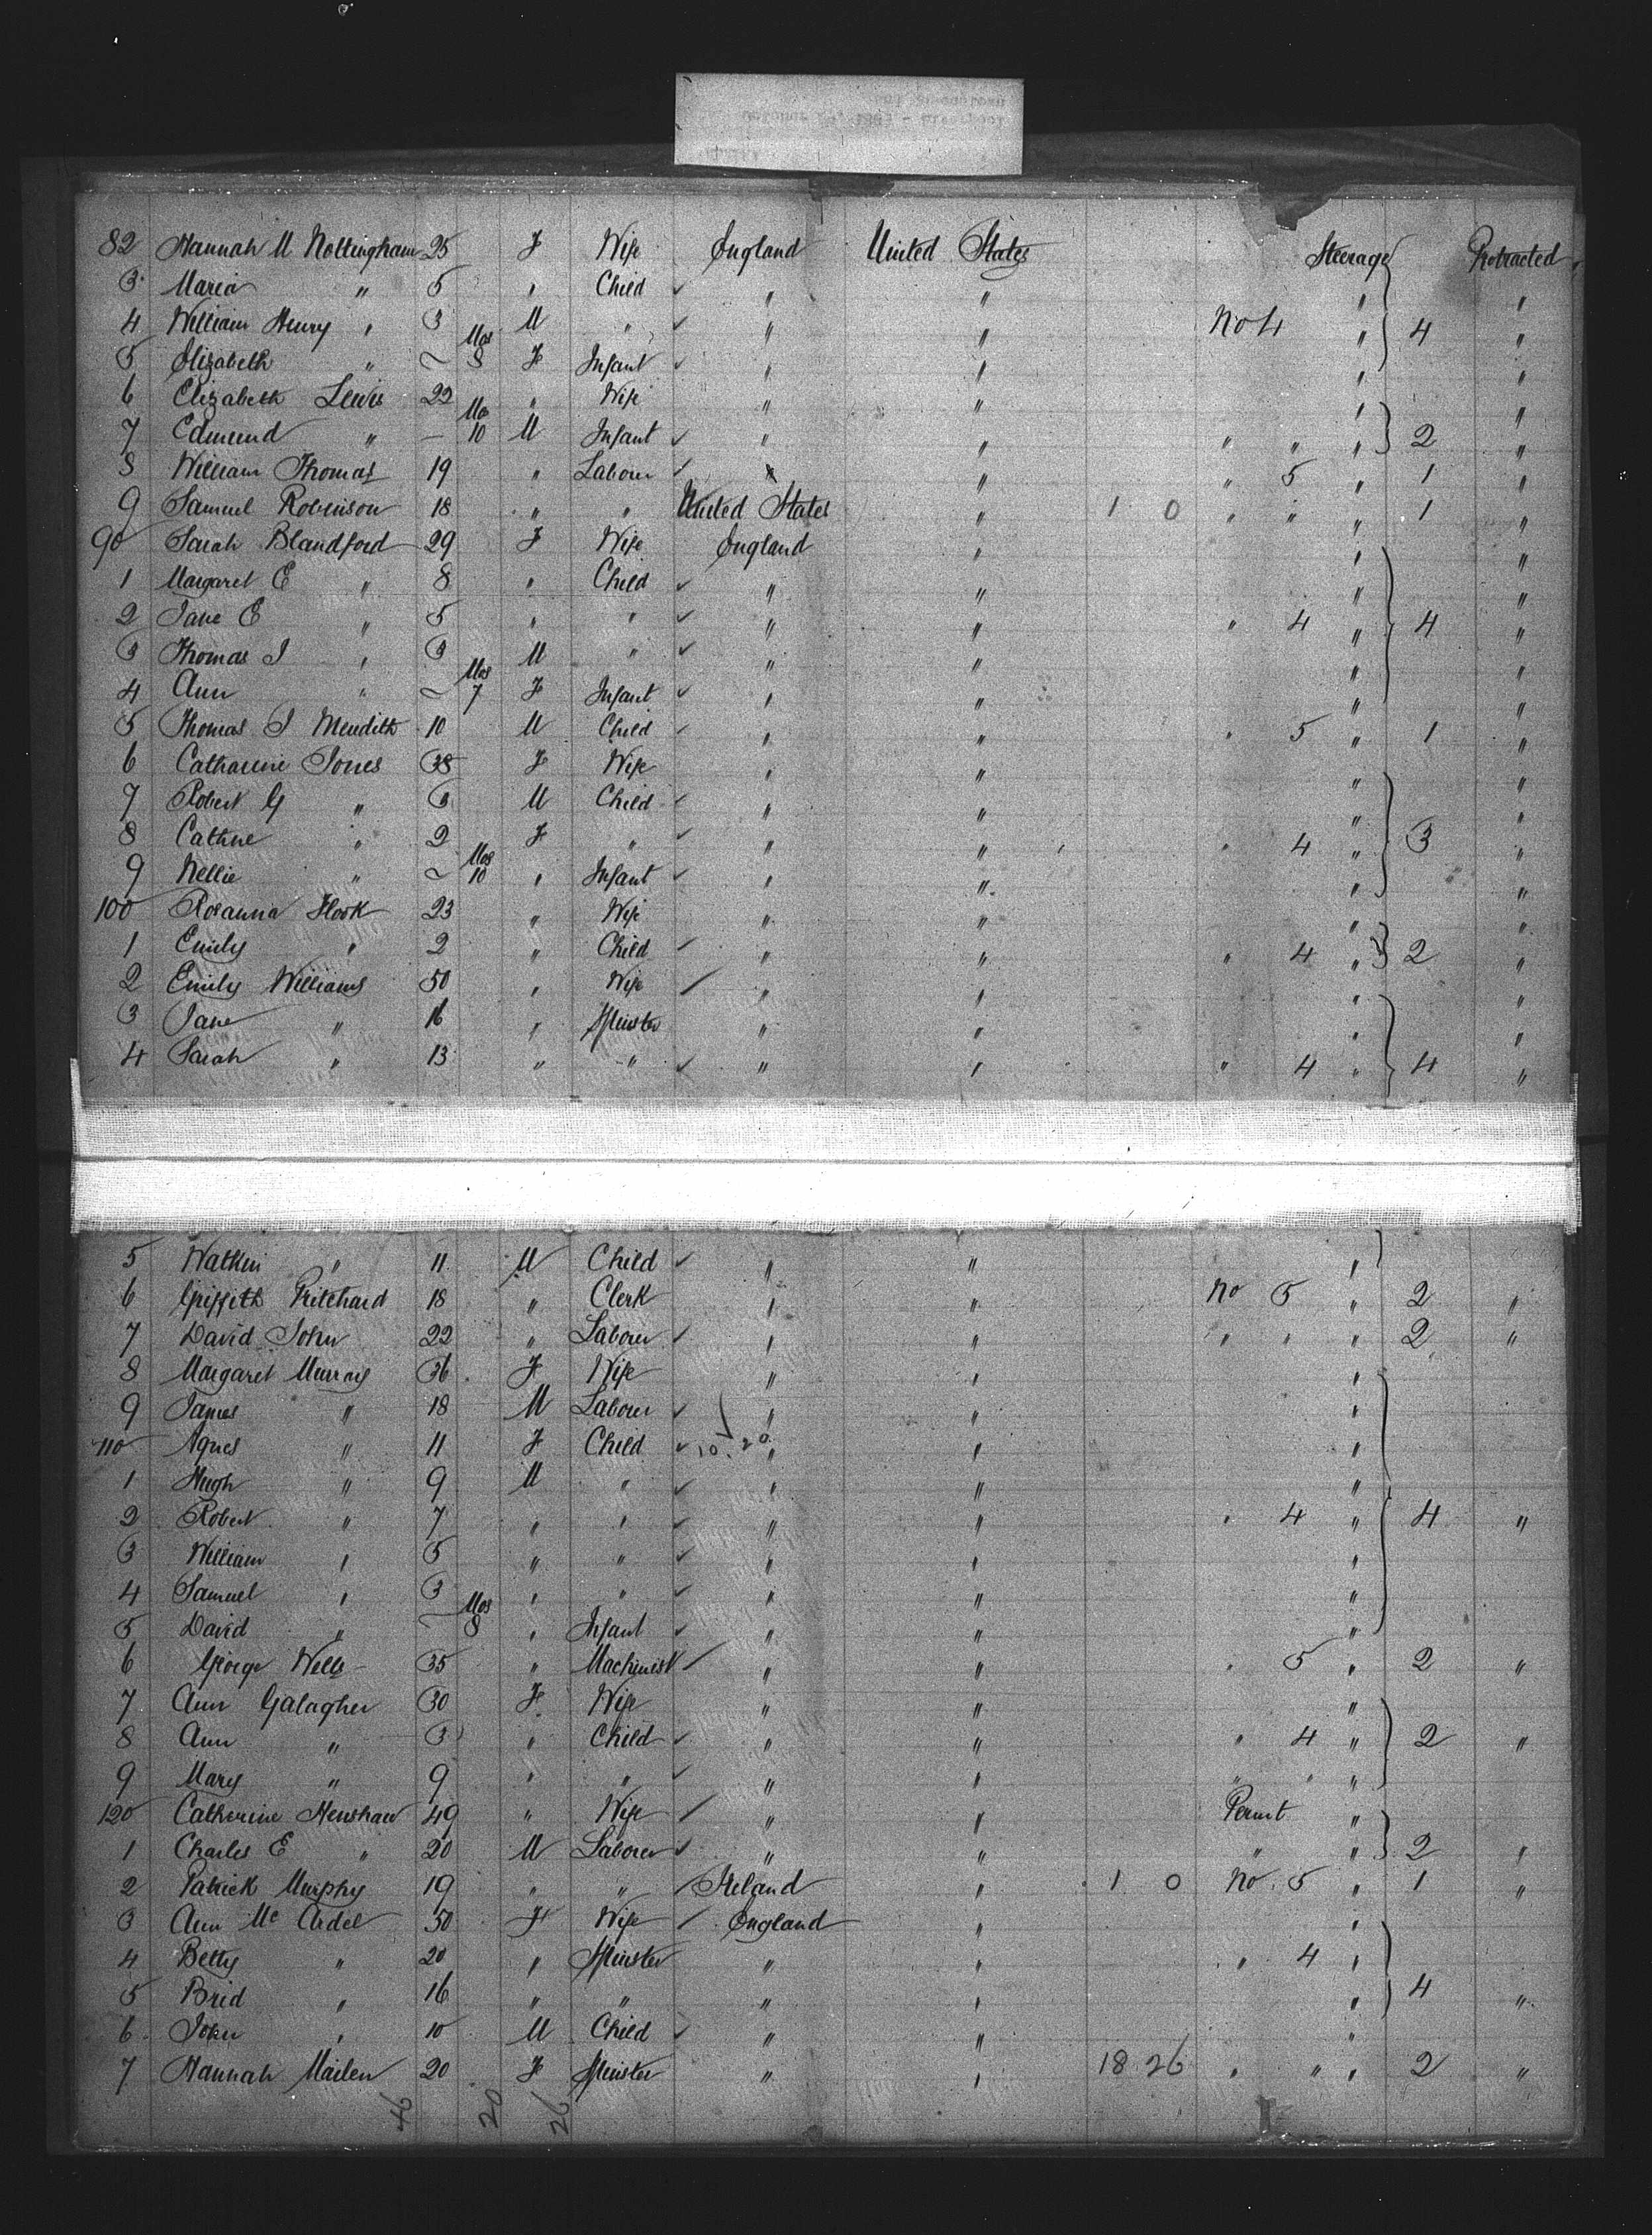 82 Hannah M Nottingham 25 F Wife England United States Steerage Protracted
3 Maria " 5 " Child ✓ " " " "
4 William Henry " 3 M " ✓ " " No 4 " 4 "
5 Elizabeth " ~ Mos 8 F Infant ✓ " " " "
6 Elizabeth Lewis 22 " Wife " " " "
7 Edmund " – Mos 10 M Infant ✓ " " " " " 2 "
8 William Thomas 19 " Laborer ✓ " " " 5 " 1 "
9 Samuel Robinson 18 " " United States " 1 0 " " " 1 "
90 Sarah Blandford 29 F Wife England " " "
1 Margaret E " 8 " Child ✓ " " " "
2 Jane E " 5 " " ✓ " " " 4 " 4 "
3 Thomas J " 3 M " ✓ " " " "
4 Ann " ~ Mos 7 F Infant ✓ " " " "
5 Thomas J Meridith 10 M Child ✓ " " " 5 " 1 "
6 Catharine Jones 38 F Wife " " " "
7 Robert G " 3 M Child ✓ " " " "
8 Cathne " 2 F " ✓ " " " 4 " 3 "
9 Nellie " ~ Mos 10 " Infant ✓ " " " "
100 Rosanna Hook 23 " Wife " " " "
1 Emily " 2 " Child ✓ " " " 4 " 2 "
2 Emily Williams 50 " Wife ✓ " " " "
3 Jane " 16 " Spinster " " " "
4 Sarah " 13 " " ✓ " " " 4 " 4 "
5 Watkin " 11 M Child ✓ " " "
6 Griffith Pritchard 18 " Clerk " " No 5 " 2 "
7 David John 22 " Laborer ✓ " " " " " 2 "
8 Margaret Murray 36 F Wife " " "
9 James " 18 M Laborer ✓ " " "
110 Agnes " 11 F Child ✓ 10 20 " " "
1 Hugh " 9 M " ✓ " " "
2 Robert " 7 " " ✓ " " " 4 " 4 "
3 William " 5 " " ✓ " " "
4 Samuel " 3 " " ✓ " " "
5 David " ~ Mos 8 " Infant ✓ " " "
6 George Wells 35 " Machinist ✓ " " " 5 " 2 "
7 Ann Galagher 30 F Wife " " "
8 Ann " 3 " Child ✓ " " " 4 " 2 "
9 Mary " 9 " " ✓ " " " " "
120 Catherine Henshaw 49 " Wife ✓ " " Permit "
1 Charles E " 20 M Laborer ✓ " " " " 2 "
2 Patrick Murphy 19 " " ✓ Ireland " 1 0 No 5 " 1 "
3 Ann Mc Ardel 50 F Wife ✓ England " "
4 Betty " 20 " Spinster " " " 4 "
5 Brid " 16 " " " " " 4 "
6 John " 10 M Child ✓ " " "
7 Hannah Mailen 20 F Spinster " " 18 26 " " " 2 "
46 20 26